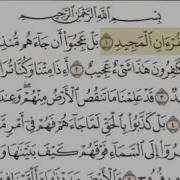 بِسْمِ اللَّهِ الرَّحْمَٰنِ الرَّحِيمِ
قُرْءَانِ الْمَجِيدِ ١ بَلْ عَجِبُوا أَن جَاءَهُم مُّنذِ
كَٰفِرُونَ هَٰذَا شَىْءٌ عَجِيبٌ ٢ أَءِذَا مِتْنَا وَكُنَّا تُرَا
٣ قَدْ عَلِمْنَا مَا تَنقُصُ الْأَرْضُ مِنْهُمْ وَعِ
٤ بَلْ كَذَّبُوا بِالْحَقِّ لَمَّا جَاءَهُمْ فَهُمْ فِي أَمْرٍ
إِلَى السَّمَاءِ فَوْقَهُمْ كَيْفَ بَنَيْنَٰهَا